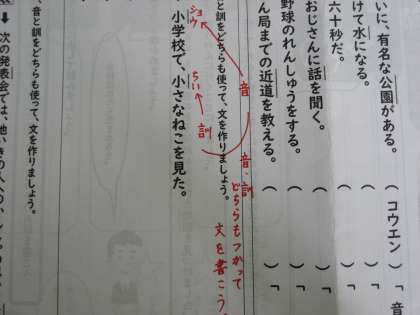 いに、有名な公園がある。（コウエン）「音
けて水になる。（　）「
六十秒だ。（　）「
おじさんに話を聞く。（　）「
野球のれんしゅうをする。（　）「
ん局までの近道を教える。（　）「
音
音、訓
どちらもつかって
文を書こう。
音と訓をどちらも使って、文を作りましょう。
訓
ショウ
ちい
小学校で、小さなねこを見た。
、音と訓をどちらも使って、文を作りましょう。
次の発表会では、